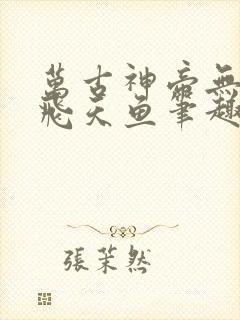 萬古神帝無
飛天魚筆趣
張茉然